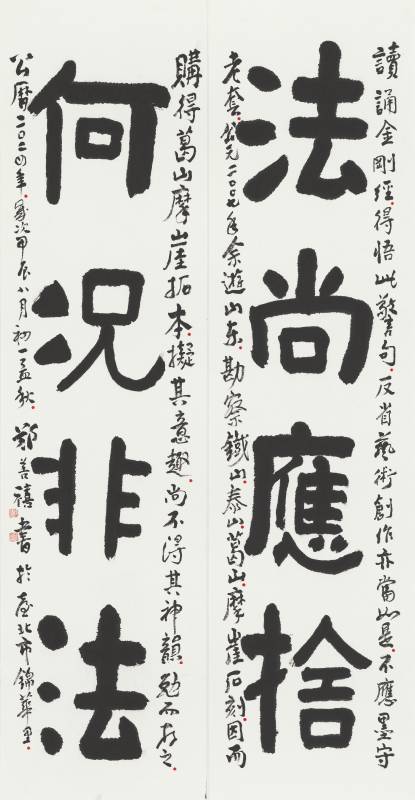 讀誦金剛經.得悟此警句.反省藝術創作亦當如是.不應墨守
法尚應捨
老套.公元二〇〇七年余遊山東.勘察鐵山.泰山.葛山.摩崖石刻.因而
購得葛山摩崖拓本.擬其意趣.尚不得其神韻.勉而存之.
何況非法
公曆二〇二四年.歲次甲辰八月初一孟秋.鄭善禧書於臺北市錦華里.